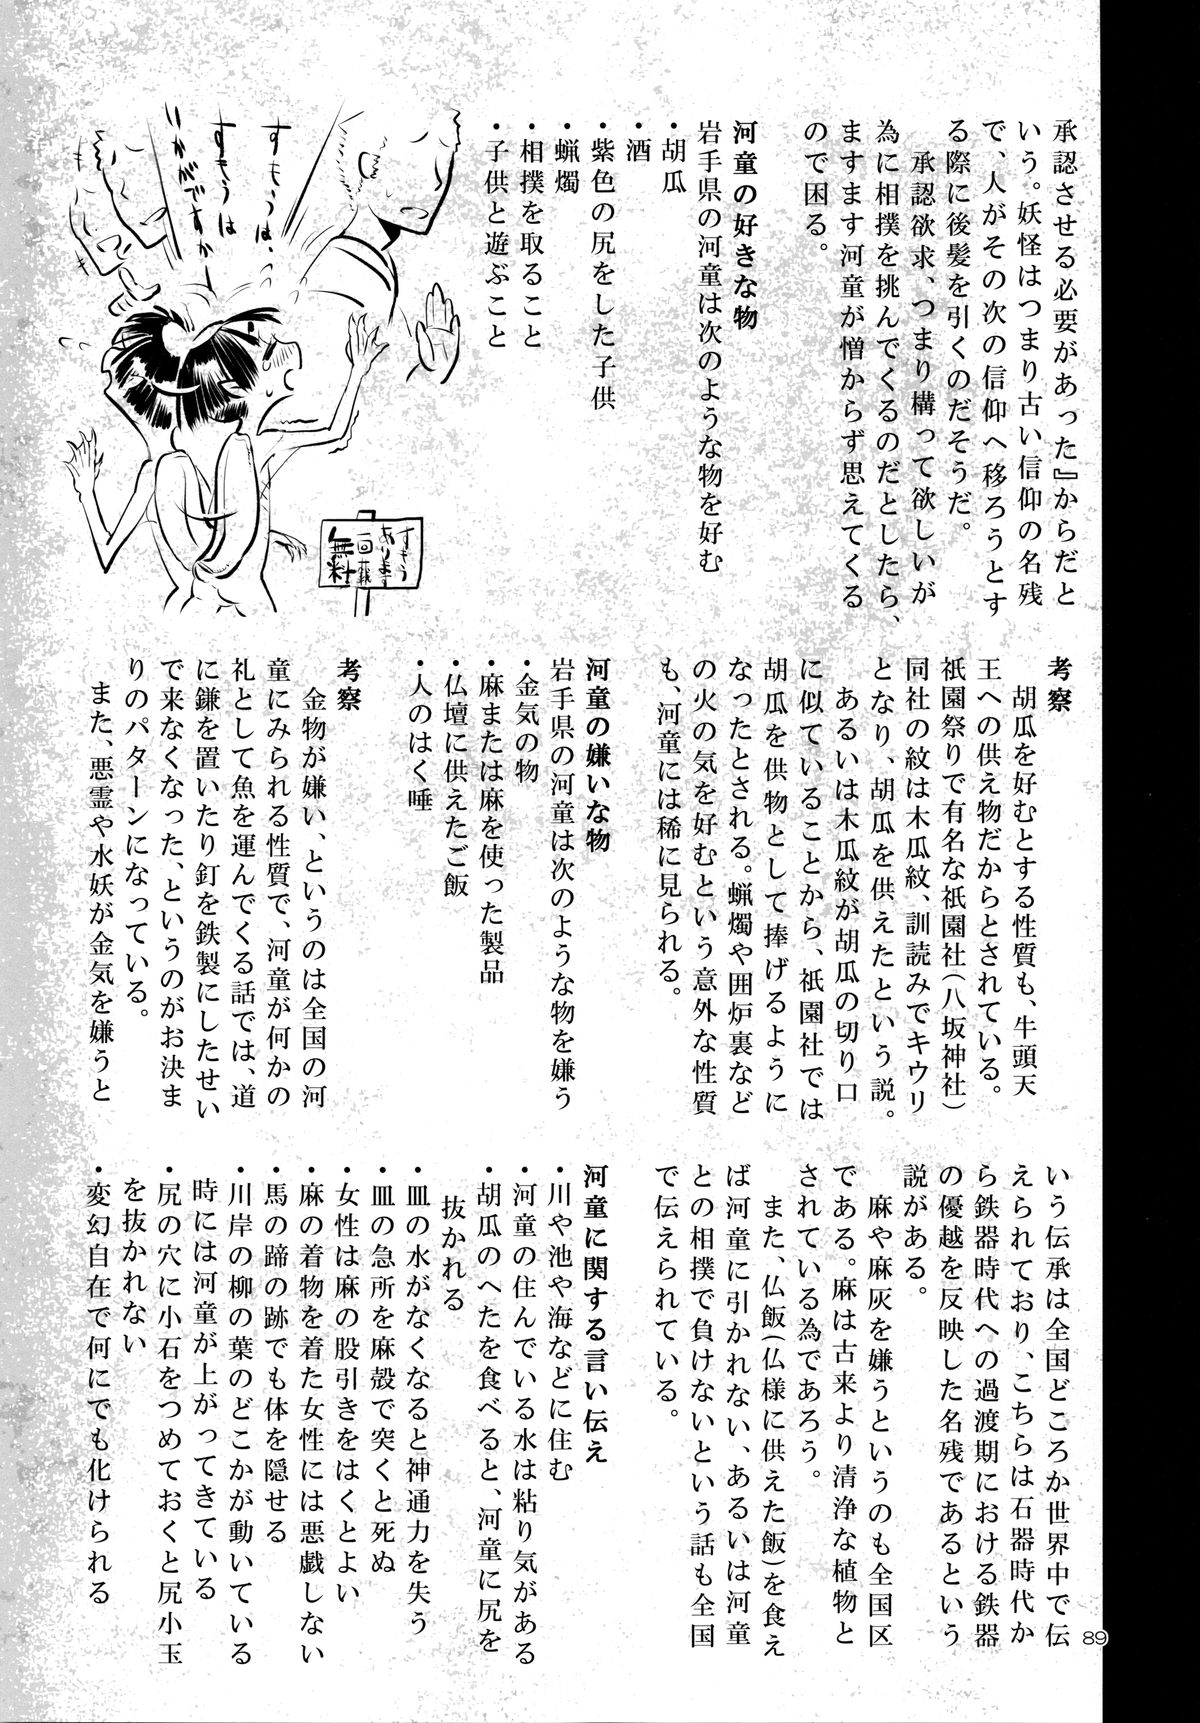 承認させる必要があった』からだと
いう。妖怪はつまり古い信仰の名残
で、人がその次の信仰へ移ろうとす
る際に後髪を引くのだそうだ。
承認欲求、つまり構って欲しいが
為に相撲を挑んでくるのだとしたら、
ますます河童が憎からず思えてくる
ので困る。
河童の好きな物
岩手県の河童は次のような物を好む
・胡瓜
・酒
・紫色の尻をした子供
・蝋燭
・相撲を取ること
・子供と遊ぶこと
すもうは、
すもうは
いかがですかー
すもう
あります
一回戦
無料
考察
胡瓜を好むとする性質も、牛頭天
王への供え物だからとされている。
祇園祭りで有名な祇園社(八坂神社)
同社の紋は木瓜紋、訓読みでキウリ
となり、胡瓜を供えたという説。
あるいは木瓜紋が胡瓜の切り口
に似ていることから、祇園社では
胡瓜を供物として捧げるように
なったとされる。蝋燭や囲炉裏など
の火の気を好むという意外な性質
も、河童には稀に見られる。
河童の嫌いな物
岩手県の河童は次のような物を嫌う
・金気の物
・麻または麻を使った製品
・仏壇に供えたご飯
・人のはく唾
考察
金物が嫌い、というのは全国の河
童にみられる性質で、河童が何かの
礼として魚を運んでくる話では、道
に鎌を置いたり釘を鉄製にしたせい
で来なくなった、というのがお決ま
りのパターンになっている。
また、悪霊や水妖が金気を嫌うと
いう伝承は全国どころか世界中で伝
えられており、こちらは石器時代か
ら鉄器時代への過渡期における鉄器
の優越を反映した名残であるという
説がある。
麻や麻灰を嫌うというのも全国区
である。麻は古来より清浄な植物と
されている為であろう。
また、仏飯(仏様に供えた飯)を食え
ば河童に引かれない、あるいは河童
との相撲で負けないという話も全国
で伝えられている。
河童に関する言い伝え
・川や池や海などに住む
・河童の住んでいる水は粘り気がある
・胡瓜のへたを食べると、河童に尻を
抜かれる
・皿の水がなくなると神通力を失う
・皿の急所を麻殻で突くと死ぬ
・女性は麻の股引きをはくとよい
・麻の着物を着た女性には悪戯しない
・馬の蹄の跡でも体を隠せる
・川岸の柳の葉のどこかが動いている
時には河童が上がってきている
・尻の穴に小石をつめておくと尻小玉
を抜かれない
・変幻自在で何にでも化けられる
89